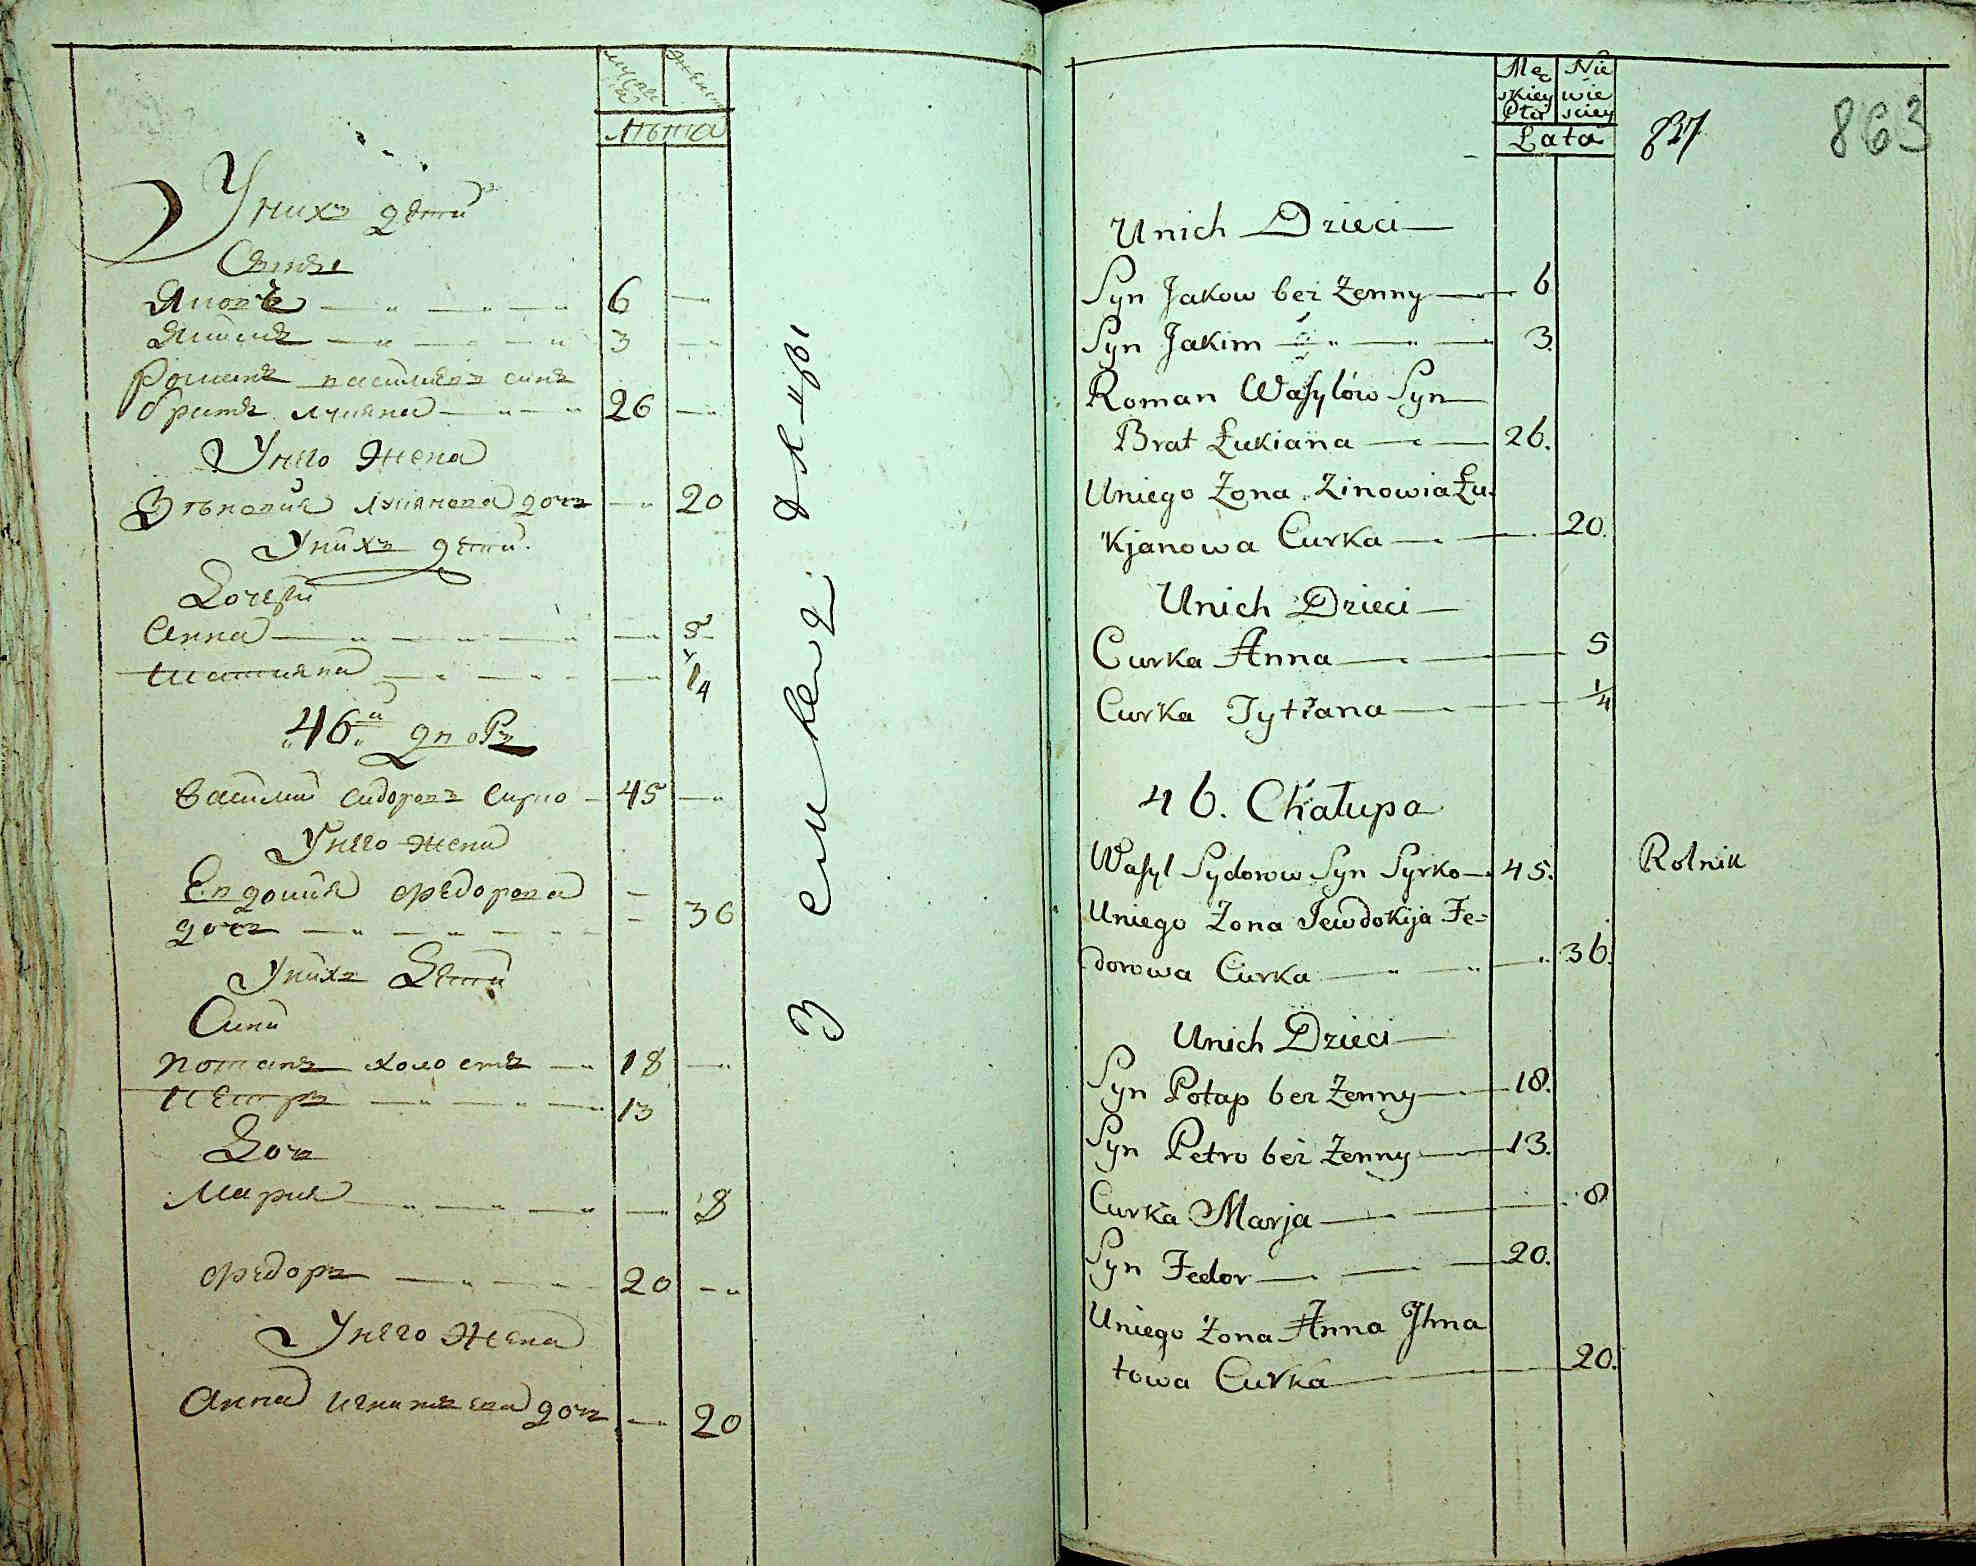 Лѣта
У нихъ дети
Сины
Яковъ 6
Якимъ 3
Романъ василевъ синъ
братъ лукяна 26
У него жена
Зѣновия Лукянова дочъ 20
У нихъ дети
Дочери
Анна 5
татияна 1/4
46й дворъ
Василий сидоровъ сирко 45
У него жена
Евдокия федорова
дочъ 36
У нихъ Дети
Сини
потапъ холостъ 18
петръ 13
Дочъ
Мария 8
федоръ 20
У него жена
Анна игнатъева дочъ 20
Mę Nie
skiey wie
Płci sciey
Lata
827
863
Unich Dzieci
Syn Jakow bez Zenny 6
Syn Jakim 3
Roman Wasylów Syn
Brat Łukiana 26.
Uniego Zona Zinowia Łu
kjanowa Curka 20.
Unich Dzieci
Curka Anna 5
Curka Tytiana 1/4
46. Chałupa
Wasyl Sydorow Syn Syrko 45. Rolnik
Uniego Zona Jewdokija Fe=
dorowa Curka 36.
Unich Dzieci
Syn Potap bez Zenny 18.
Syn Petro bez Zenny 13.
Curka Marja 8
Syn Fedor 20.
Uniego Zona Anna Ihna
towa Curka 20.